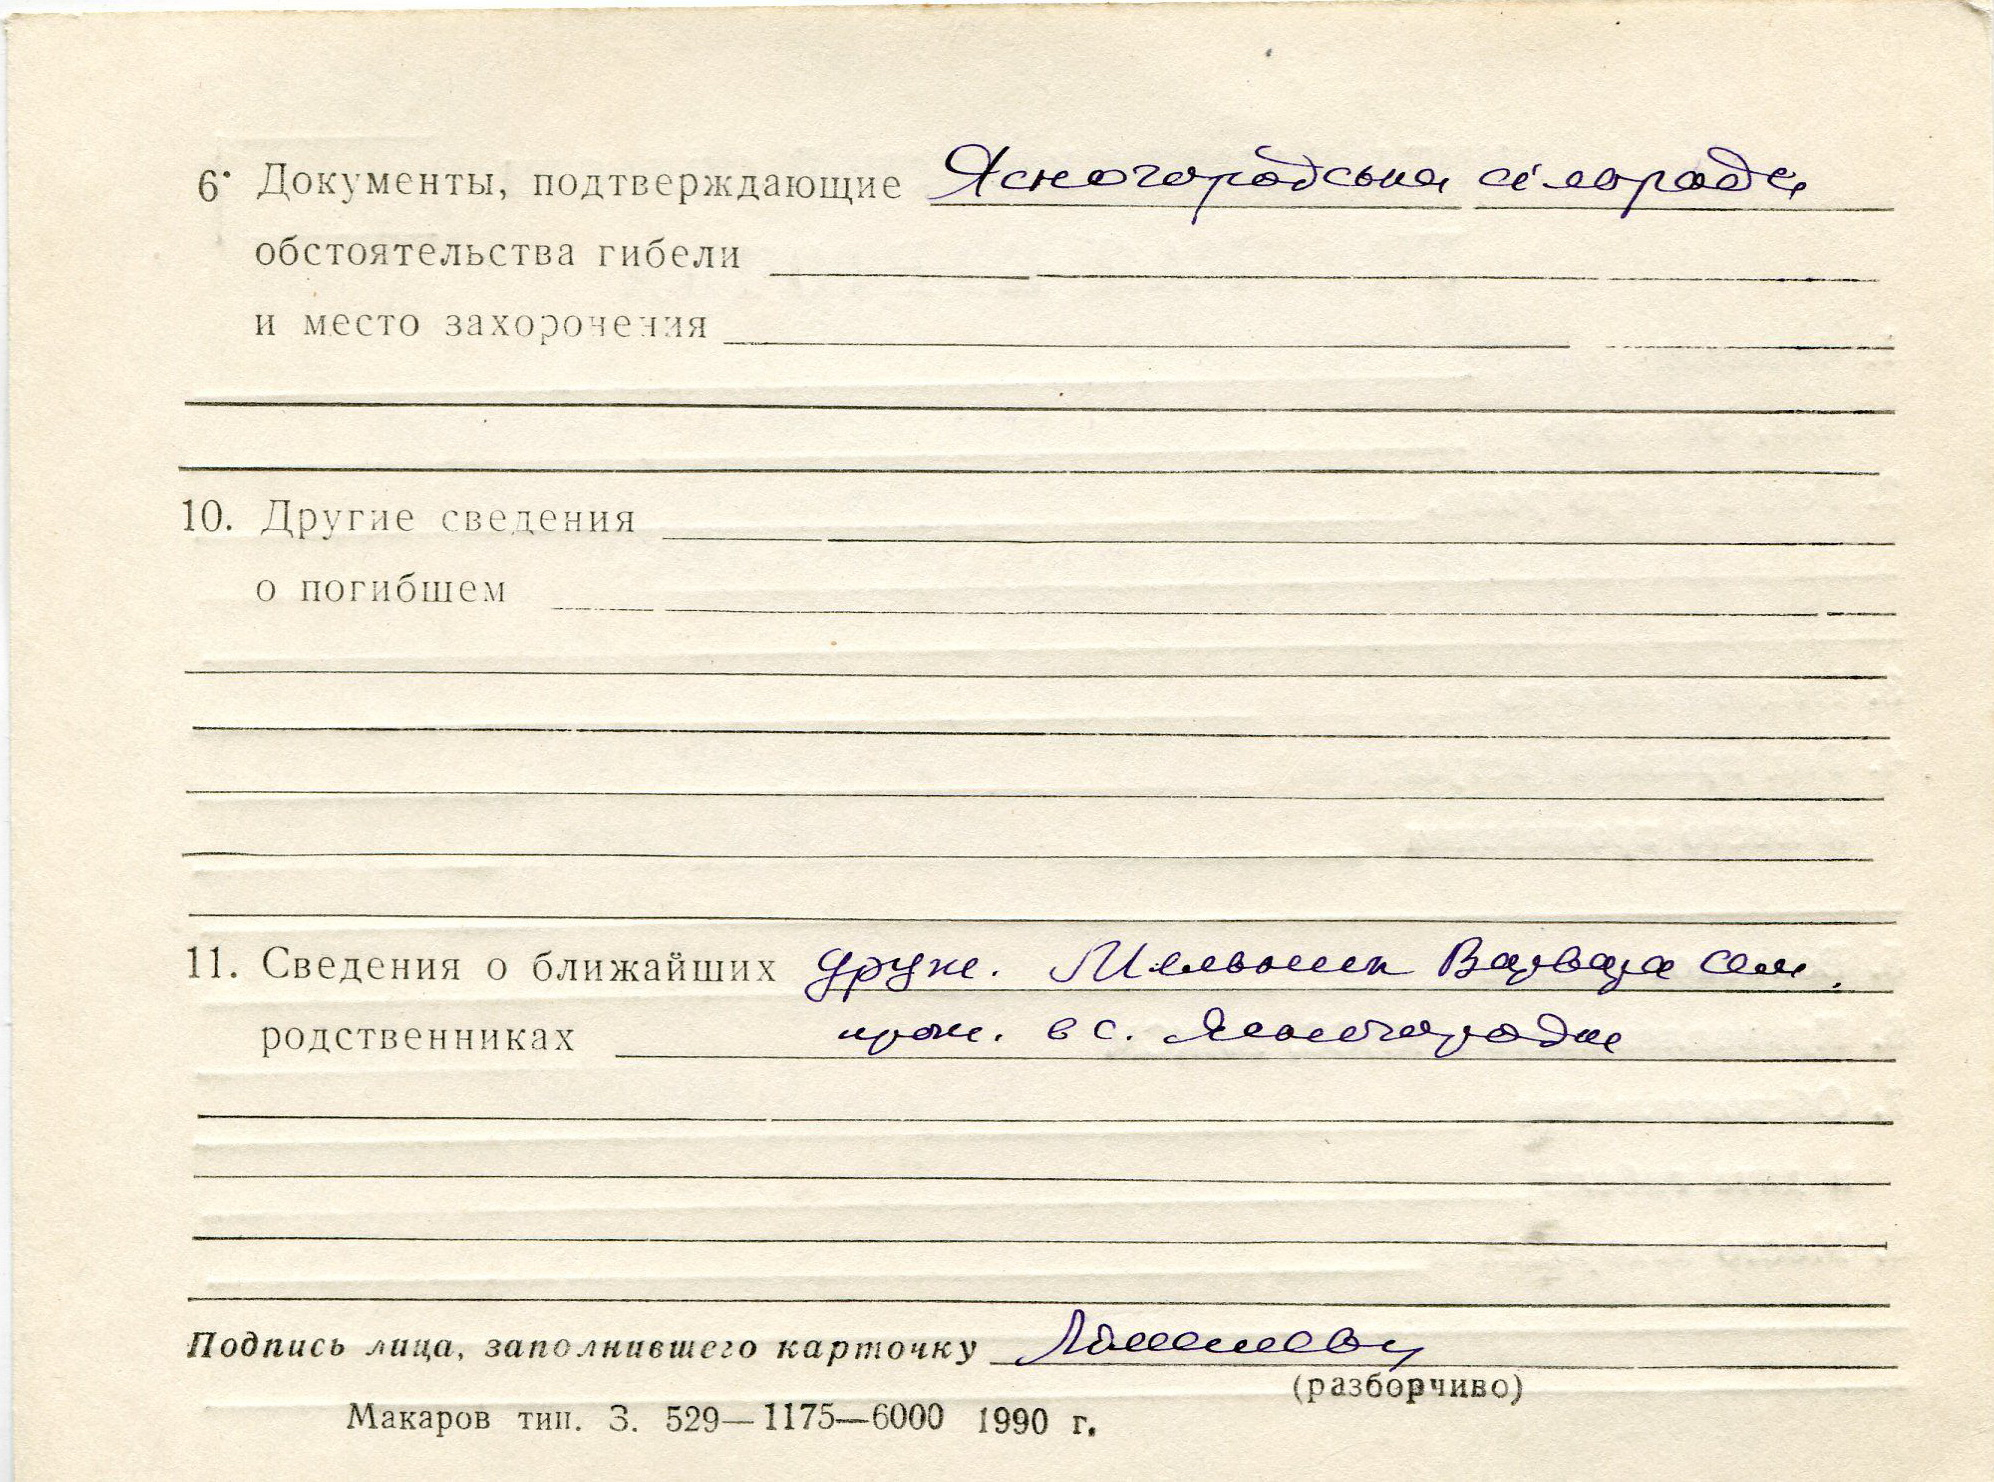 6. Документы, подтверждающие Ясногородська сілорада
обстоятельства гибели
и место захоронения
10. Другие сведения
о погибшем
11. Сведения о ближайших друж. Мельник Варвара Сем.
родственниках прож. в с. Ясногородка
Подпись лица, заполнившего карточку
(разборчиво)
Макаров тип. З. 529—1175—6000 1990 г.